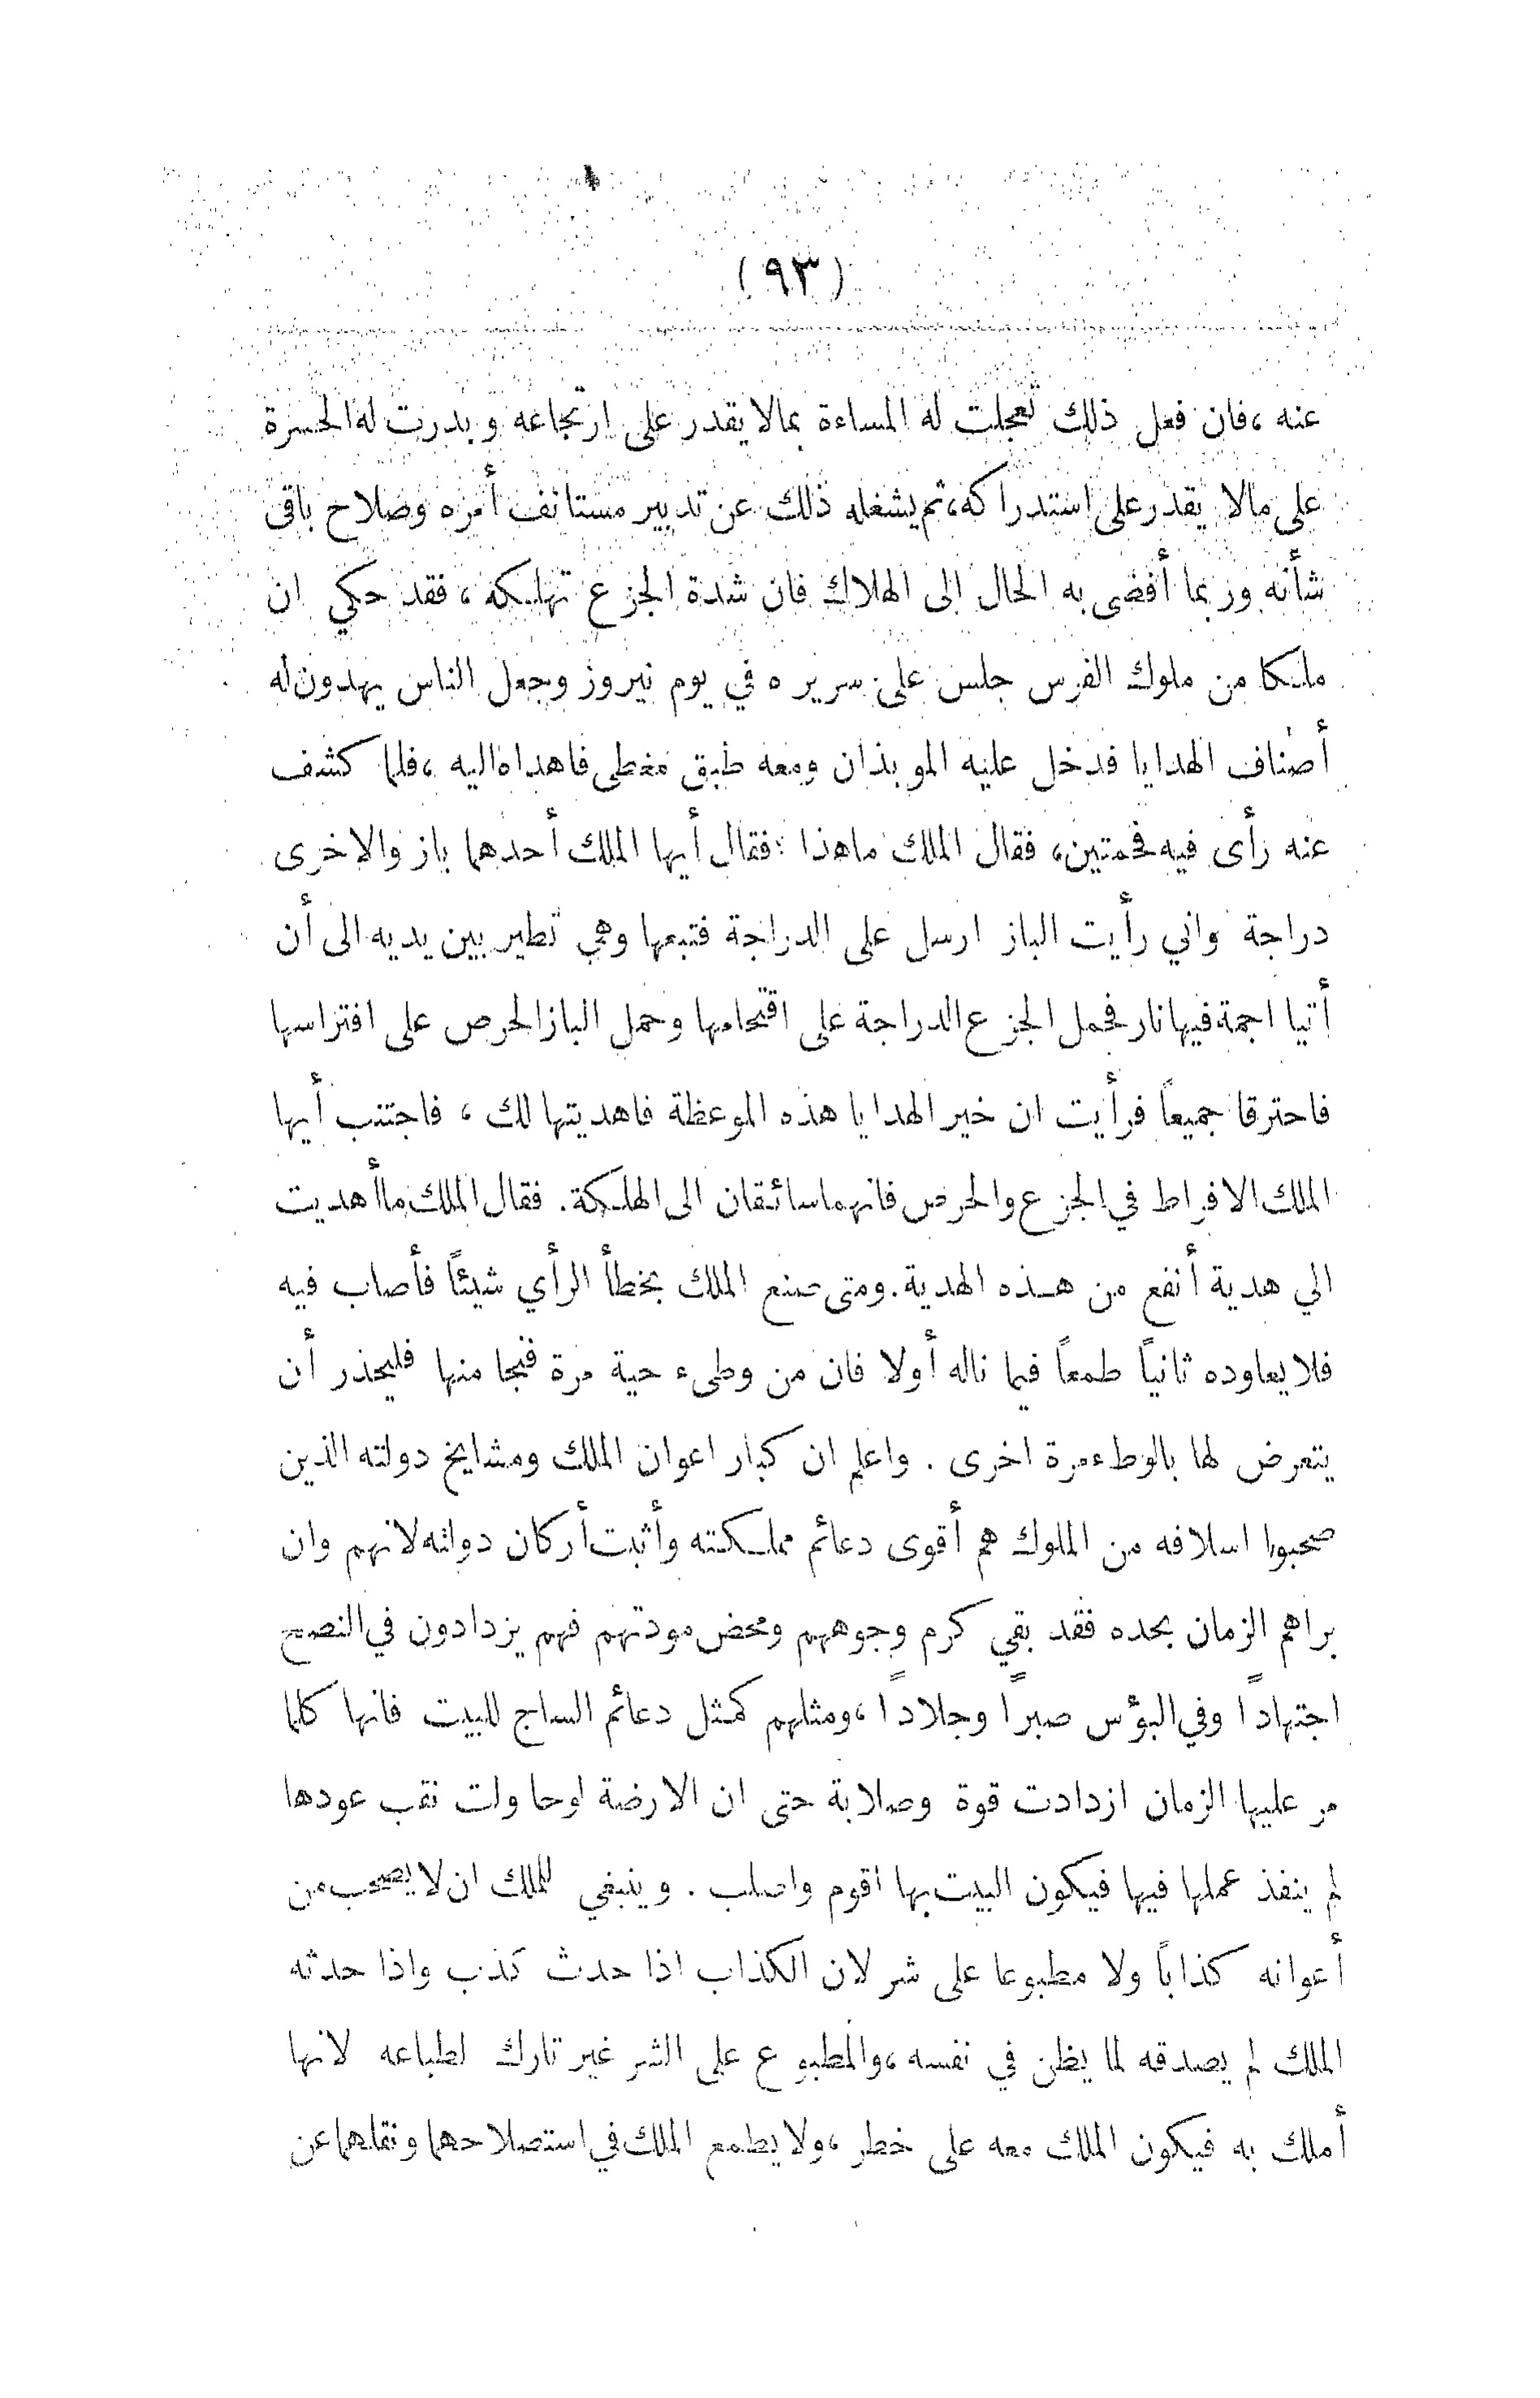 (٩٣)
عنه ، فان فعل ذلك تعجلت له المساءة بمالا يقدر على ارتجاعه وبدرت له الحسرة
على مالا يقدر على استدراكه، ثم يشغله ذلك عن تدبير مستانف أمره وصلاح باقي
شأنه وربما أفضى به الحال الى الهلاك فان شدة الجزع تهلكه ، فقد حكي ان
ملكا من ملوك الفرس جلس على سريره في يوم نيروز وجعل الناس يهدون له
أصناف الهدايا فدخل عليه الموبذان ومعه طبق مغطى فاهداه اليه ، فلما كشف
عنه رأى فيه فحمتين، فقال الملك ماهذا ؛ فقال أيها الملك أحدهما باز والاخرى
دراجة واني رأيت الباز ارسل على الدراجة فتبعها وهي تطير بين يديه الى أن
أتيا اجمة فيها نار فحمل الجزع الدراجة على اقتحامها وحمل الباز الحرص على افتراسها
فاحترقا جميعاً فرأيت ان خير الهدايا هذه الموعظة فاهديتها لك ، فاجتنب أيها
الملك الافراط في الجزع والحرص فانهما سائقان الى الهلكة. فقال الملك ما أهديت
الي هدية أنفع من هذه الهدية. ومتى صنع الملك بخطأ الرأي شيئاً فأصاب فيه
فلا يعاوده ثانياً طمعاً فيما ناله أولا فان من وطىء حية مرة فنجا منها فليحذر أن
يتعرض لها بالوطء مرة اخرى . واعلم ان كبار اعوان الملك ومشايخ دولته الذين
صحبوا اسلافه من الملوك هم أقوى دعائم مملكته وأثبت أركان دولته لانهم وان
براهم الزمان بحده فقد بقي كرم وجوههم ومحض مودتهم فهم يزدادون في النصح
اجتهاداً وفي البؤس صبراً وجلاداً ، ومثلهم كمثل دعائم الساج للبيت فانها كلما
مر عليها الزمان ازدادت قوة وصلابة حتى ان الارضة لو حاولت نقب عودها
لم ينفذ عملها فيها فيكون البيت بها اقوم واصلب . وينبغي للملك ان لا يصحب من
أعوانه كذاباً ولا مطبوعا على شر لان الكذاب اذا حدث كذب واذا حدثه
الملك لم يصدقه لما يظن في نفسه ، والمطبوع على الشر غير تارك لطباعه لانها
أملك به فيكون الملك معه على خطر ، ولا يطمع الملك في استصلاحهما ونقلهما عن